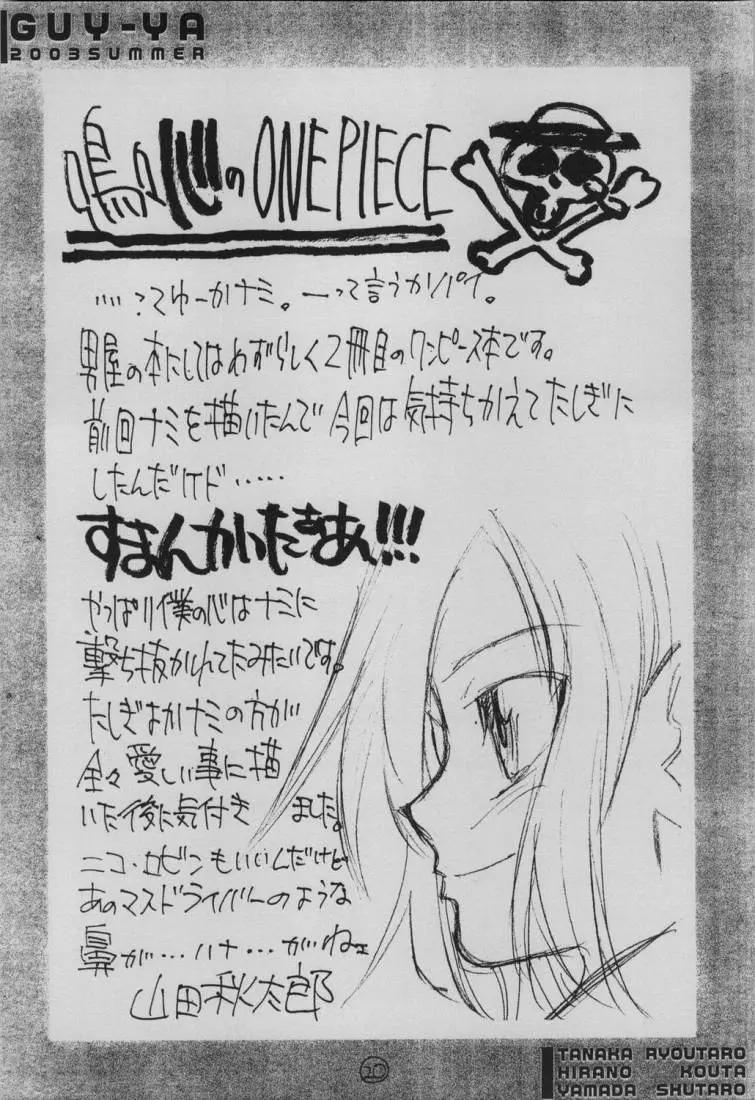 GUY-YA
2003SUMMER
心のONE PIECE
……ってゆーかナミ。―って言うかパイ。
男屋の本にしてはめずらしく2冊目のワンピース本です。
前回ナミを描いたんで今回は気持ちかえてたしぎに
したんだけド……
すまんかいた
やっぱり僕の心はナミに
撃ち抜かれてたみたいです。
たしぎよかナミの方が
全々愛しい事に描
いた後に気付き ました。
ニコ・ロビンもいいんだけど
あのマスドライバーのような
鼻が…ハナ…がねェ
山田秋太郎
20
TANAKA RYOUTARO
HIRANO KOUTA
YAMADA SHUTARO